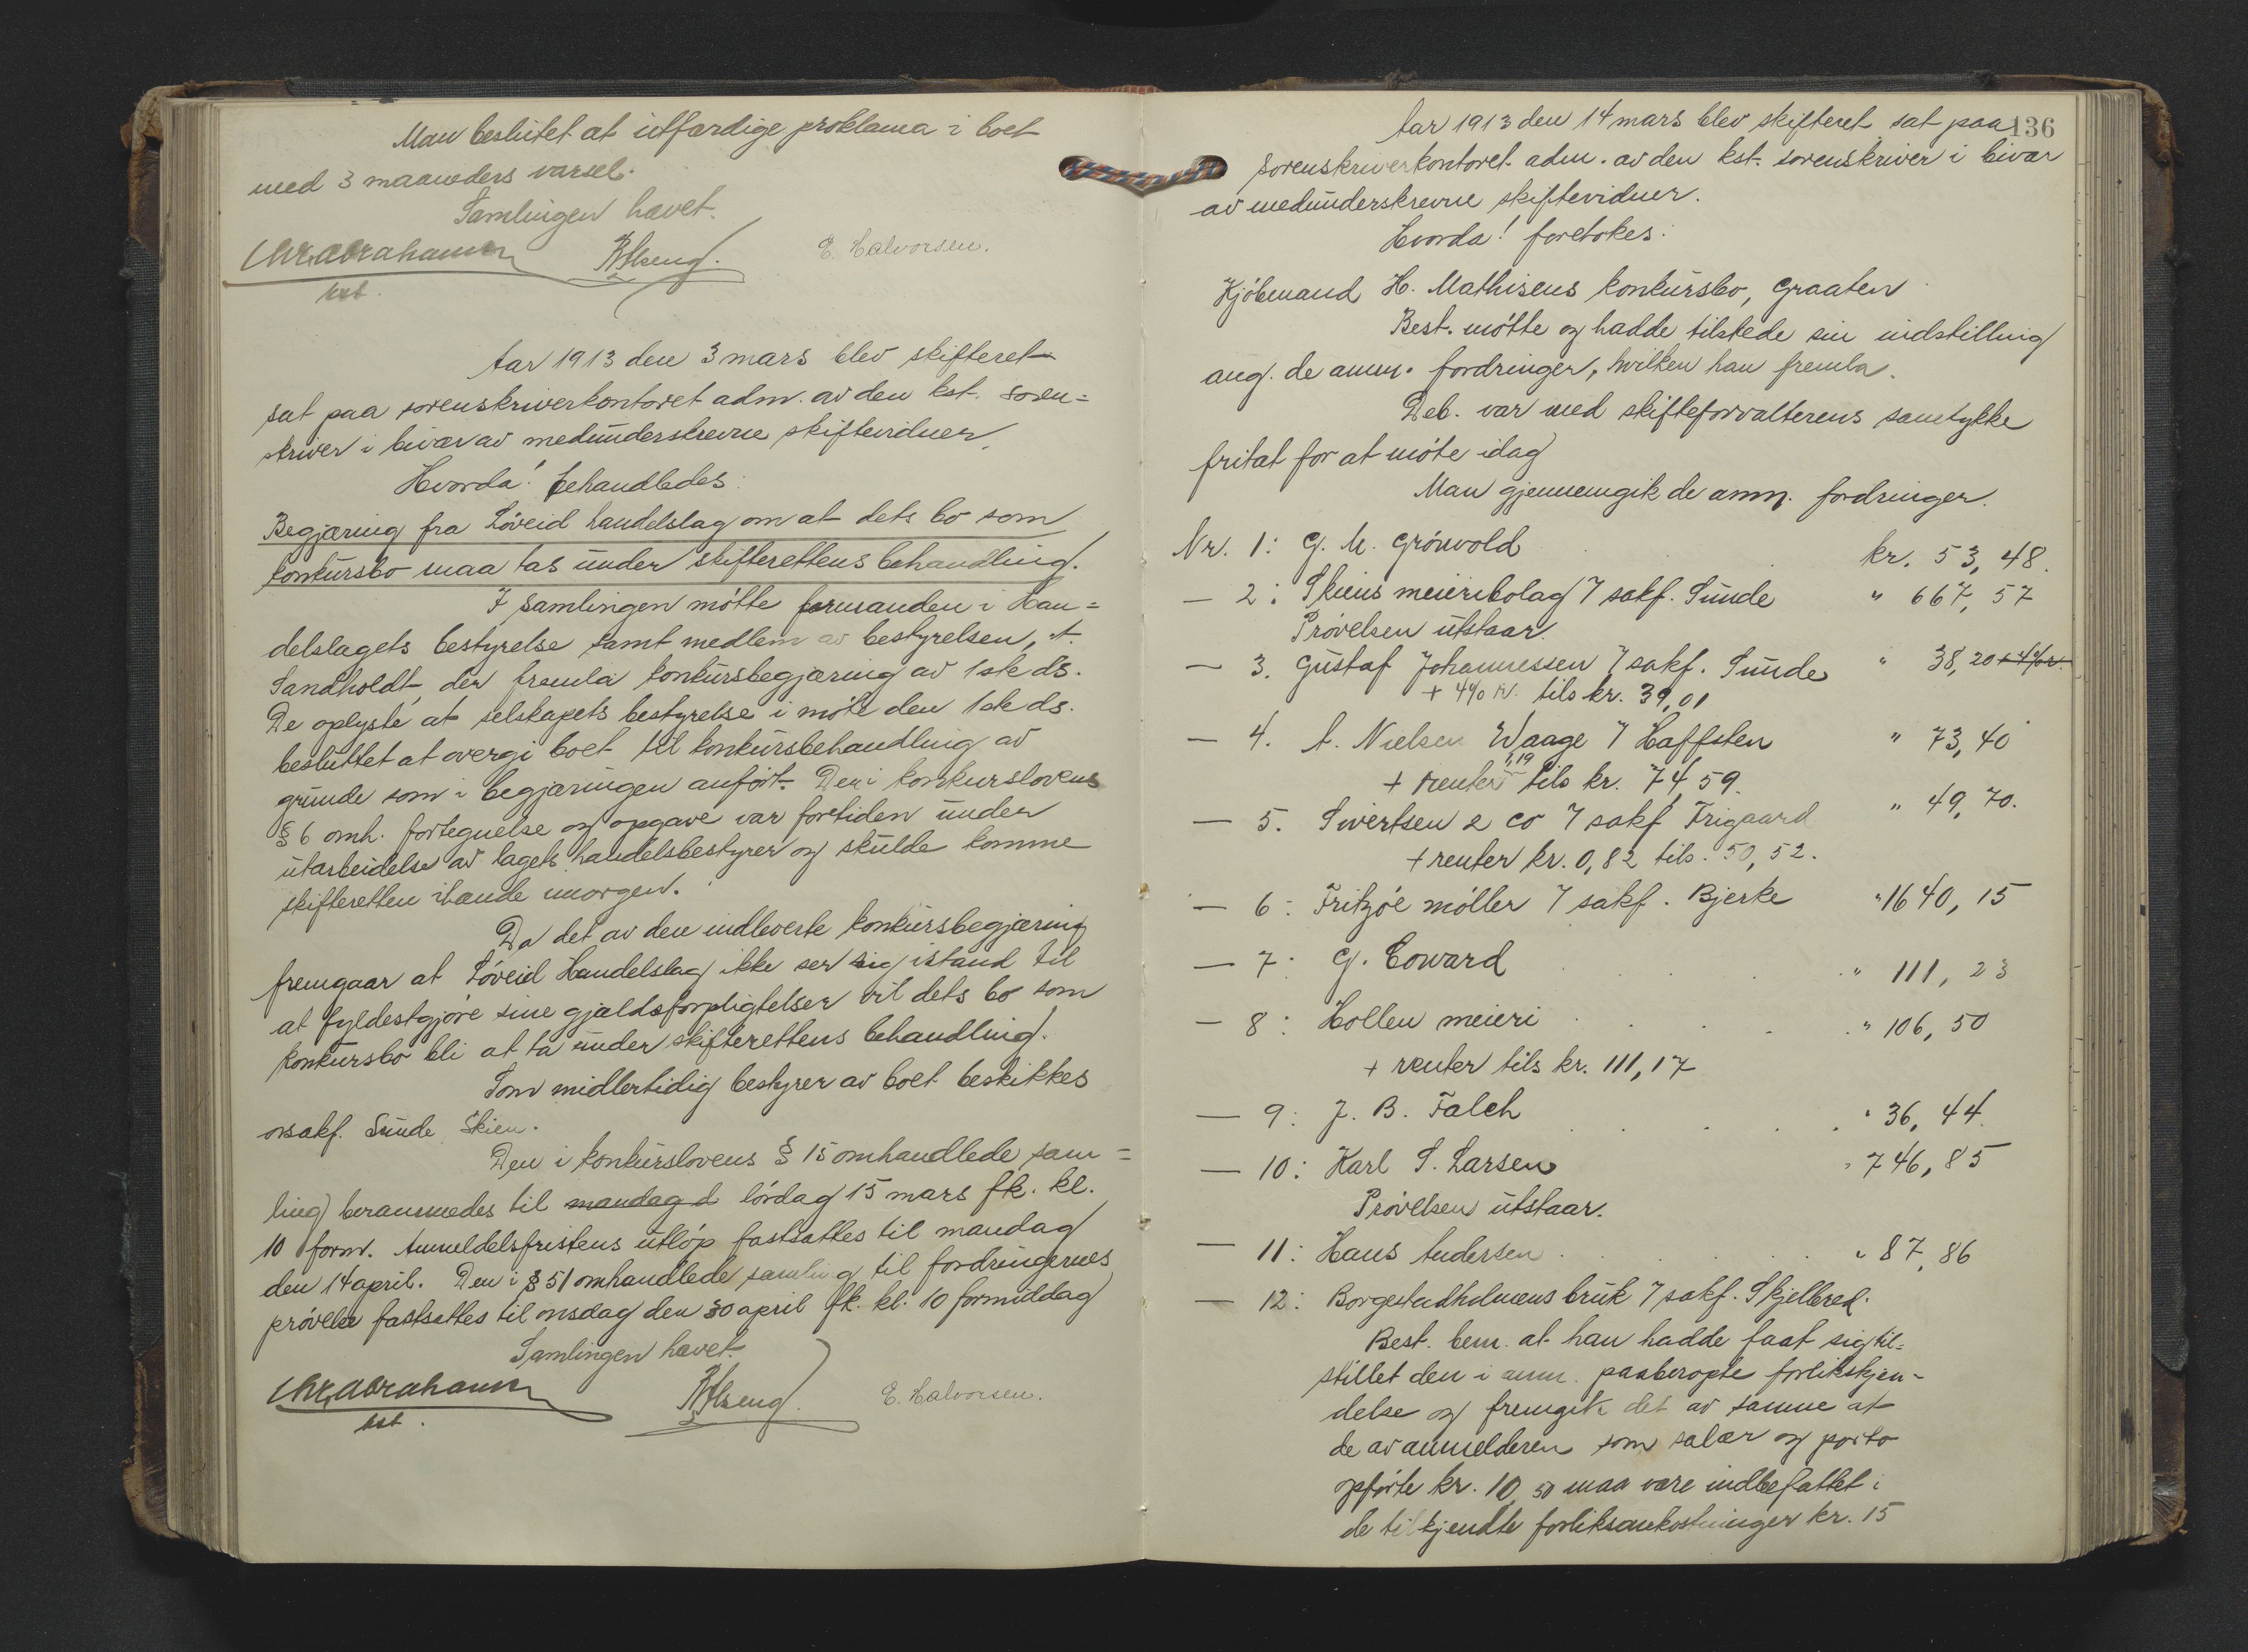 Man beslutet at utfærdige proklama i boet
med 3 maaneders varsel.
Samlingen hævet.
Chr. Abrahamsen
kst.
E. Halvorsen.
Aar 1913 den 3 mars blev skifteret
sat paa sorenskriverkontoret adm. av den kst. soren=
skriver i bivær av medunderskrevne skiftevidner.
Hvorda! behandledes:
Begjæring fra Løveid handelslag om at dets bo som
konkursbo maa tas under skifterettens behandling.
I samlingen møtte formanden i Han=
delslagets bestyrelse samt medlem av bestyrelsen, A.
Sandholdt, der fremla konkursbegjæring av 1ste ds.
De oplyste at selskapets bestyrelse i møte den 1ste ds.
besluttet at overgi boet til konkursbehandling av
grunde som i begjæringen anført. Den i konkurslovens
§ 6 omh. fortegnelse og opgave var fortiden under
utarbeidelse av lagets handelsbestyrer og skulde komme
skifteretten ihænde imorgen.
Da det av den indleverte konkursbegjæring
fremgaar at Løveid Handelslag ikke ser sig istand til
at fyldestgjøre sine gjældsforpligtelser vil dets bo som
konkursbo bli at ta under skifterettens behandling.
Som midlertidig bestyrer av boet beskikkes
o.r.sakf. Sunde Skien.
Den i konkurslovens § 15 omhandlede sam=
ling berammedes til mandag d lørdag 15 mars fk. kl.
10 form. Anmeldelsfristens utløp fastsattes til mandag
den 14 april. Den i § 51 omhandlede samling til fordringernes
prøvelse fastsattes til onsdag den 30 april fk. kl. 10 formiddag
Samlingen hævet.
Chr. Abrahamsen
kst.
E. Halvorsen.
136
Aar 1913 den 14 mars blev skifteret sat paa
sorenskriverkontoret adm. av den kst. sorenskriver i bivær
av medunderskrevne skiftevidner.
Hvorda! foretokes:
Kjøbmand H. Mathisens konkursbo, Graaten
Best. møtte og hadde tilstede sin indstilling
ang. de anm. fordringer, hvilken han fremla.
Deb. var med skifteforvalterens samtykke
fritat for at møte idag
Man gjennemgik de anm. fordringer.
Nr. 1: G. M. Grönvold kr. 53,48.
— 2: Skiens meieribolag / sakf. Sunde " 667,57
Prøvelsen utstaar.
— 3. Gustaf Johannessen / sakf. Sunde " 38,20 + 4% r.
+ 4% r. tils kr. 39,01
— 4. A. Nielsen Waage / Haffsten " 73,40
+ renter 1,19 tils kr. 74,59.
— 5. Sivertsen & co / sakf Frigaard " 49,70.
+ renter kr. 0,82 tils. 50,52.
— 6: Fritzöe møller / sakf. Bjerke " 1640,15
— 7: G. Coward " 111,23
— 8: Hollen meieri " 106,50
+ renter tils kr. 111,17
— 9: J. B. Falch " 36,44.
— 10: Karl S. Larsen " 746,85
Prøvelsen utstaar.
— 11: Hans Andersen " 87,86
— 12: Borgestadholmens bruk / sakf. Skjelbred.
Best. bem. at han hadde faat sig til=
stillet den i anm. paaberopte forlikskjen-
delse og fremgik det av samme at
de av anmelderen som salær og porto
opførte kr. 10,50 maa være indbefattet i
de tilkjendte forliksomkostninger kr. 15